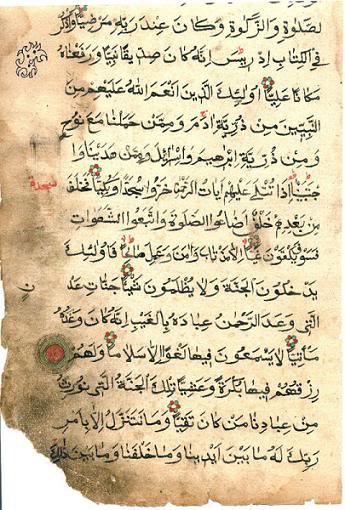 لصلوة والزكوة وكان عند ربه مرضيا واذكر
في الكتاب ادريس انه كان صديقا نبيا ورفعناه
مكانا عليا اولئك الذين انعم الله عليهم من
النبيين من ذرية ادم وممن حملنا مع نوح
ومن ذرية ابرهيم واسرائل وممن هدينا وا
جتبينا اذا تتلى عليهم ايات الرحمن خروا سجدا وبكيا فخلف
سجدة
من بعدهم خلف اضاعوا الصلوة واتبعوا الشهوات
فسوف يلقون غيا الا من تاب وامن وعمل صالحا فاولئك
يدخلون الجنة ولا يظلمون شيئا جنات عد
ن
التي وعد الرحمن عباده بالغيب انه كان وعده
مأتيا لا يسمعون فيها لغوا الا سلاما ولهم
رزقهم فيها بكرة وعشيا تلك الجنة التي نورث
من عبادنا من كان تقيا وما نتنزل الا بامر
ربك له ما بين ايدينا وما خلفنا وما بين ذلك